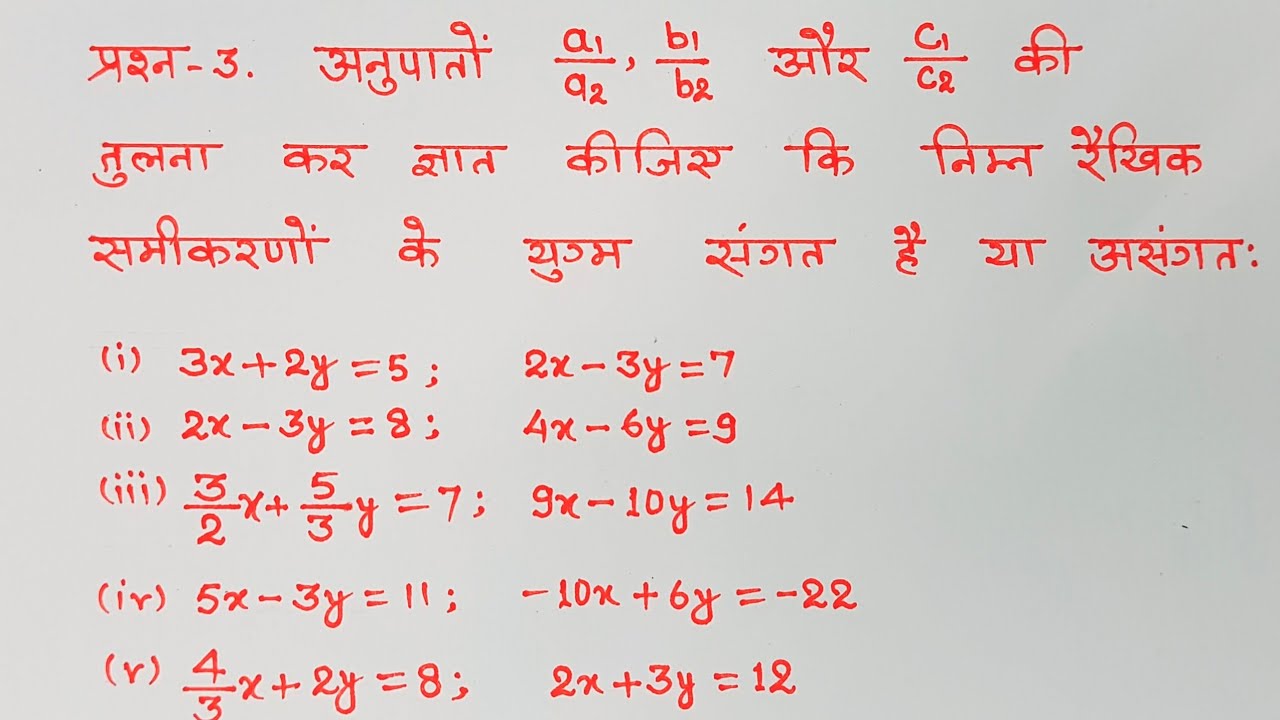 प्रश्न-3. अनुपातों a₁/a₂, b₁/b₂ और c₁/c₂ की
तुलना कर ज्ञात कीजिए कि निम्न रैखिक
समीकरणों के युग्म संगत है या असंगत:
(i) 3x+2y=5; 2x-3y=7
(ii) 2x-3y=8; 4x-6y=9
(iii) 3/2x+5/3y=7; 9x-10y=14
(iv) 5x-3y=11; -10x+6y=-22
(v) 4/3x+2y=8; 2x+3y=12